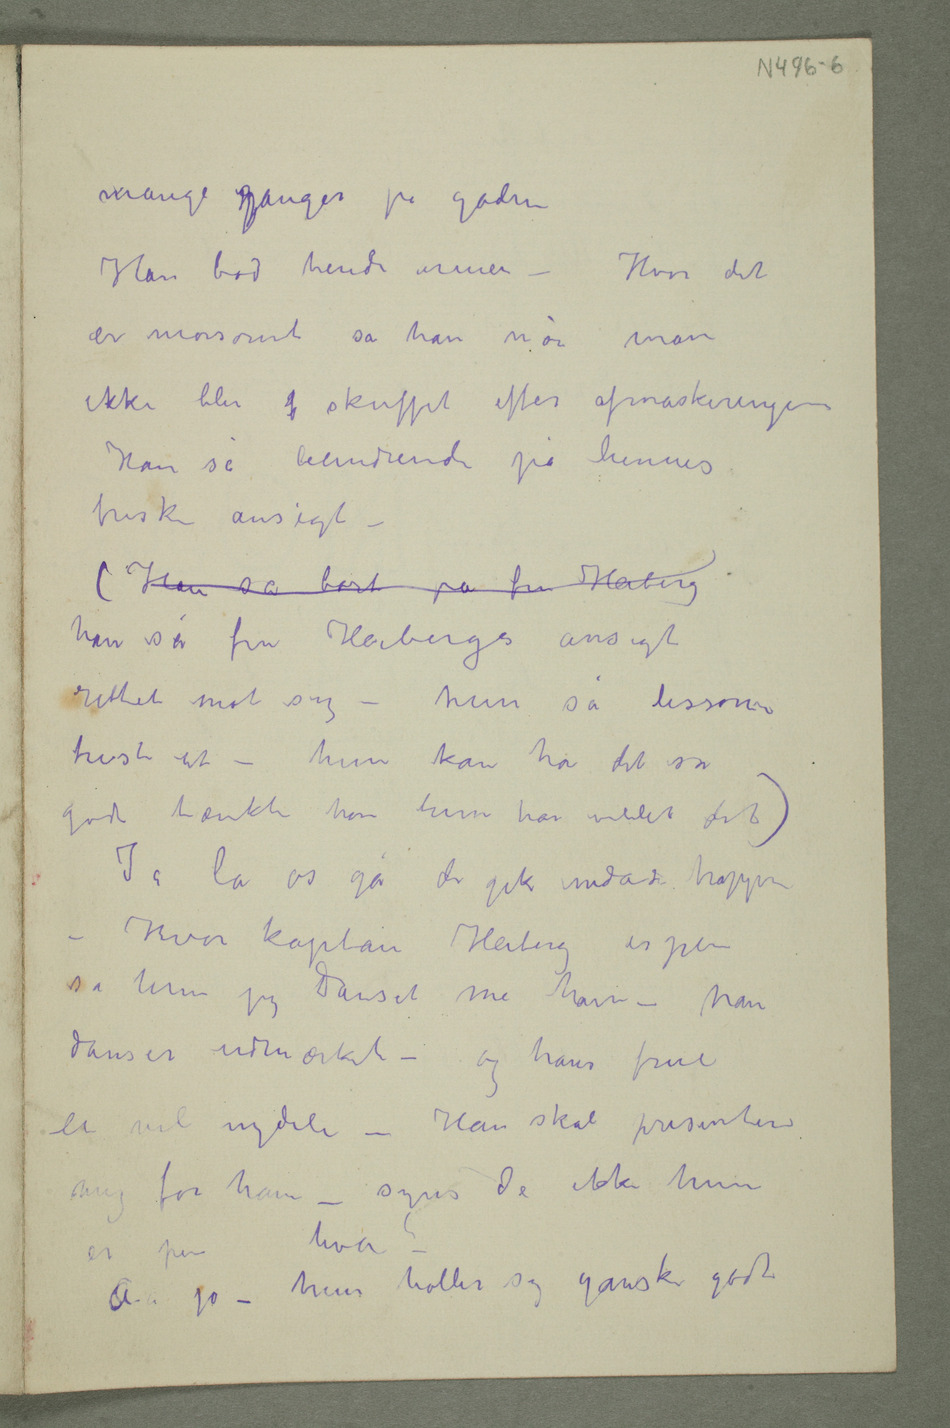 N496-6
mange ganger på gaden
Han bød hende armen – Hvor det
er morsomt sa han når man
ikke blir skuffet efter afmaskeringen
Han så beundrende på hennes
friske ansigt –
(Han så bort på fru Heiberg
han så fru Heibergs ansigt
rettet mot sig – hun så
trist ut – hun kan ha det så
godt tænkte han hun har villet det)
Ja la os gå de gik trappen
– Hvor kaptain Heiberg er pen
sa hun jeg danset me ham – han
danser udmærket – og hans frue
er vel nydeli – Han skal presentere
mig for ham – synes De ikke hun
er pen hva? –
Aa jo – hun holler sig ganske godt